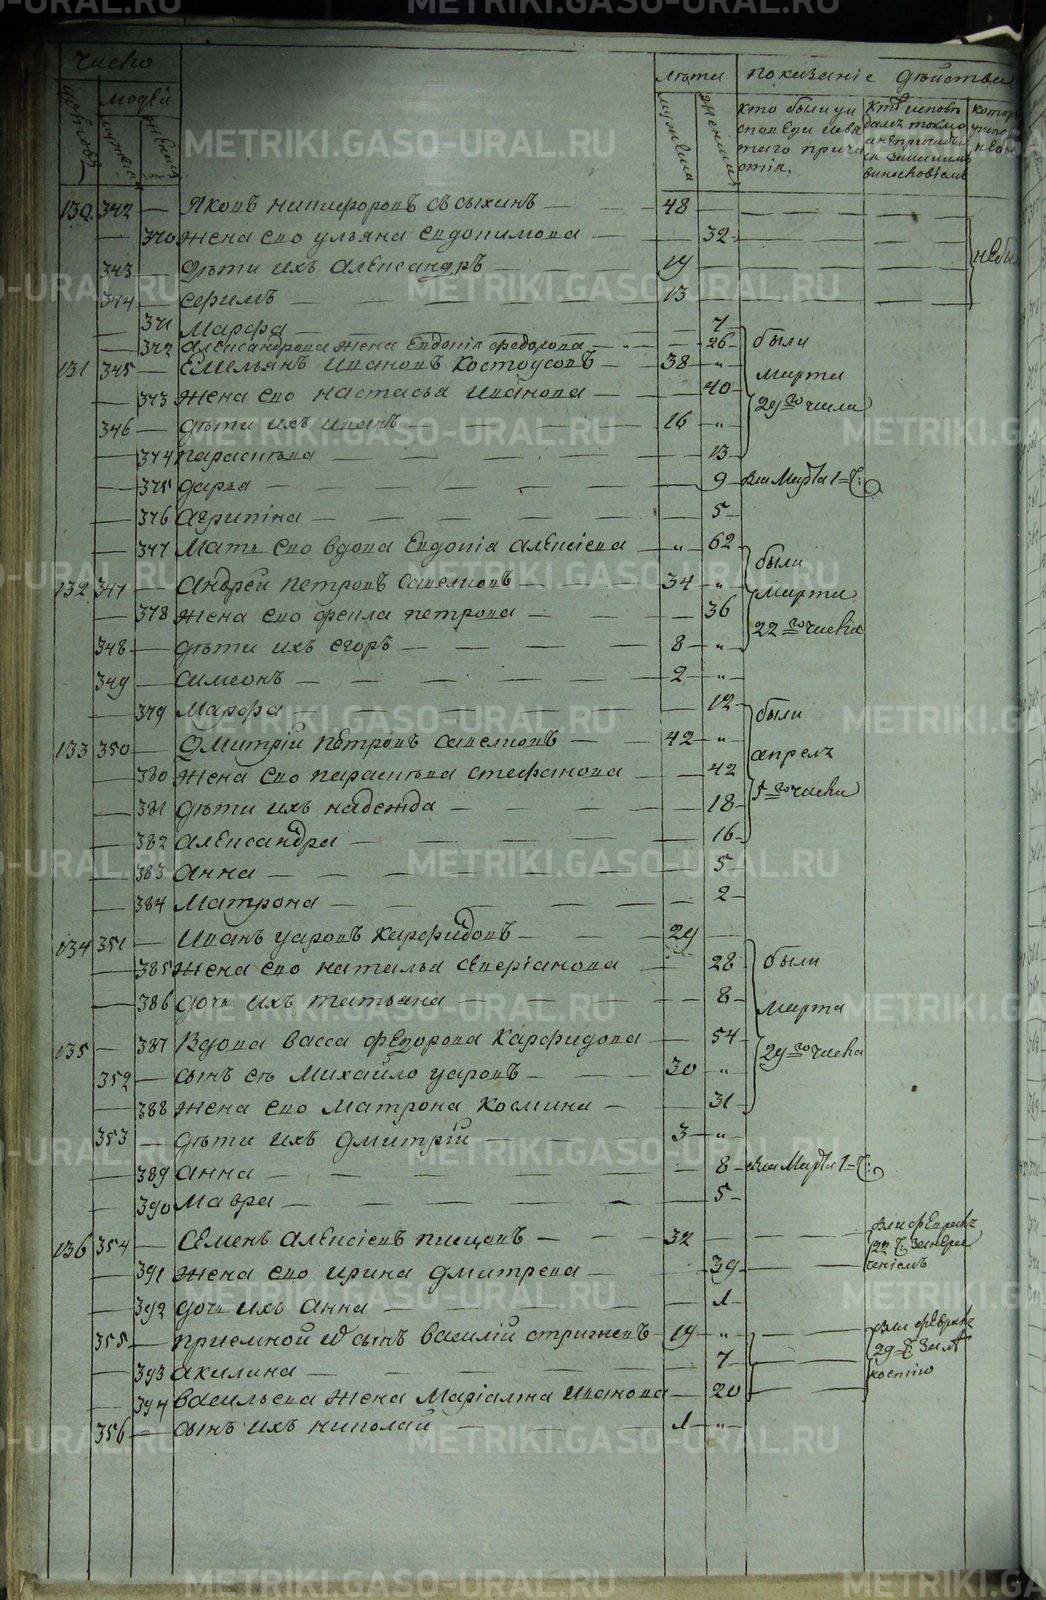 число
людей
дворовъ мужеска женска
лѣта показаніе дѣйства
мужеска женска
кто были у исповеди и святаго причастія.
кто исповѣдалъ токмо а не причастился и за какимъ винословіемъ
130 342 — Яковъ никифоровъ сысыхинъ — 48 — — — —
— 370 жена ево ульяна евдокимова — — 32 — — —
343 — дѣти ихъ александръ — 19 — — — — небы
344 — ефимъ — 13 — — — —
— 371 Марфа — — 7
— 372 александрова жена Евдокія федорова — — 26 были
131 345 — Емельянъ ивановъ Костоусовъ — 38 — „
— 373 жена ево настасья иванова — — 40 марта
346 — дѣти ихъ иванъ — 16 — „ 29го числа
— 374 парасковья — — 13
— 375 дарья — — 9 — Марта 1
— 376 агрипина — — 5
— 377 Мать ево вдова Евдокія алексіева — „ 62 были
132 347 — андрей петровъ савелковъ — 34 — „ марта
— 378 жена ево фекла петрова — — 36 22го числа
348 — дѣти ихъ егоръ — 8 — „
349 — симеонъ — 2 — „
— 379 Марфа — — 12
133 350 — Дмитрій петровъ савелковъ — 42 — „ были
— 380 жена ево парасковья стефанова — — 42 апреля
— 381 дѣти ихъ надежда — — 18 5го числа
— 382 александра — — 16
— 383 анна — — 5
— 384 Матрона — — 2
134 351 — иванъ уаровъ карфидовъ — 29 —
— 385 жена ево наталья аверіанова — — 28 были
— 386 дочь ихъ татьяна — — 8 марта
135 — 387 вдова васса федорова карфидова — — 54 29го числа
352 — сынъ еѣ михайло уаровъ — 30 — „
— 388 жена ево матрона космина — — 31
353 — дѣти ихъ дмитрій — 3 — „
— 389 анна — — 8 — Марта 1
— 390 мавра — — 5
136 354 — семенъ алексіевъ пищовъ — 32 — — февраля 22
— 391 жена ево ирина дмитрева — — 39 — —
— 392 дочь ихъ анна — — 1
355 — приемной сынъ василій стрижевъ — 19 — „ февраля
— 393 акилина — — 7 — 29
— 394 васильева жена маріамна иванова — — 20 —
356 — сынъ ихъ николай — 1 — „
METRIKI.GASO-URAL.RU